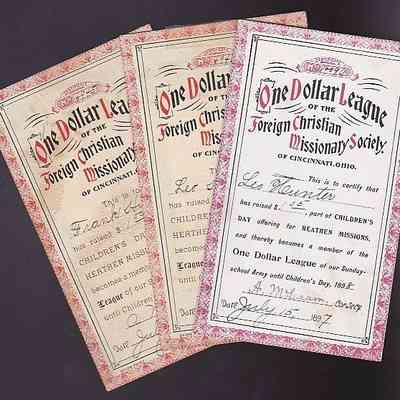 One Dollar League
OF THE
Foreign Christian
Missionary
OF CINCINNATI
This is to
Frank
has raised $
CHILDREN'S DA
HEATHEN MISSION
becomes a mem
League of our
until Children
Date
One Dollar
OF THE
Foreign Christian
Miss
OF CINCIN
This is
Leo
has raised
CHILDREN'S
HEATHEN
becomes a
League of
until Chil
Date
One Dollar League
OF THE
Foreign Christian
Missionary Society
OF CINCINNATI, OHIO.
This is to certify that
Leo Hunter
has raised $ part of CHILDREN'S
DAY offering for HEATHEN MISSIONS,
and thereby becomes a member of the
One Dollar League of our Sunday-
school Army until Children's Day, 1898
Date July 15, 1897